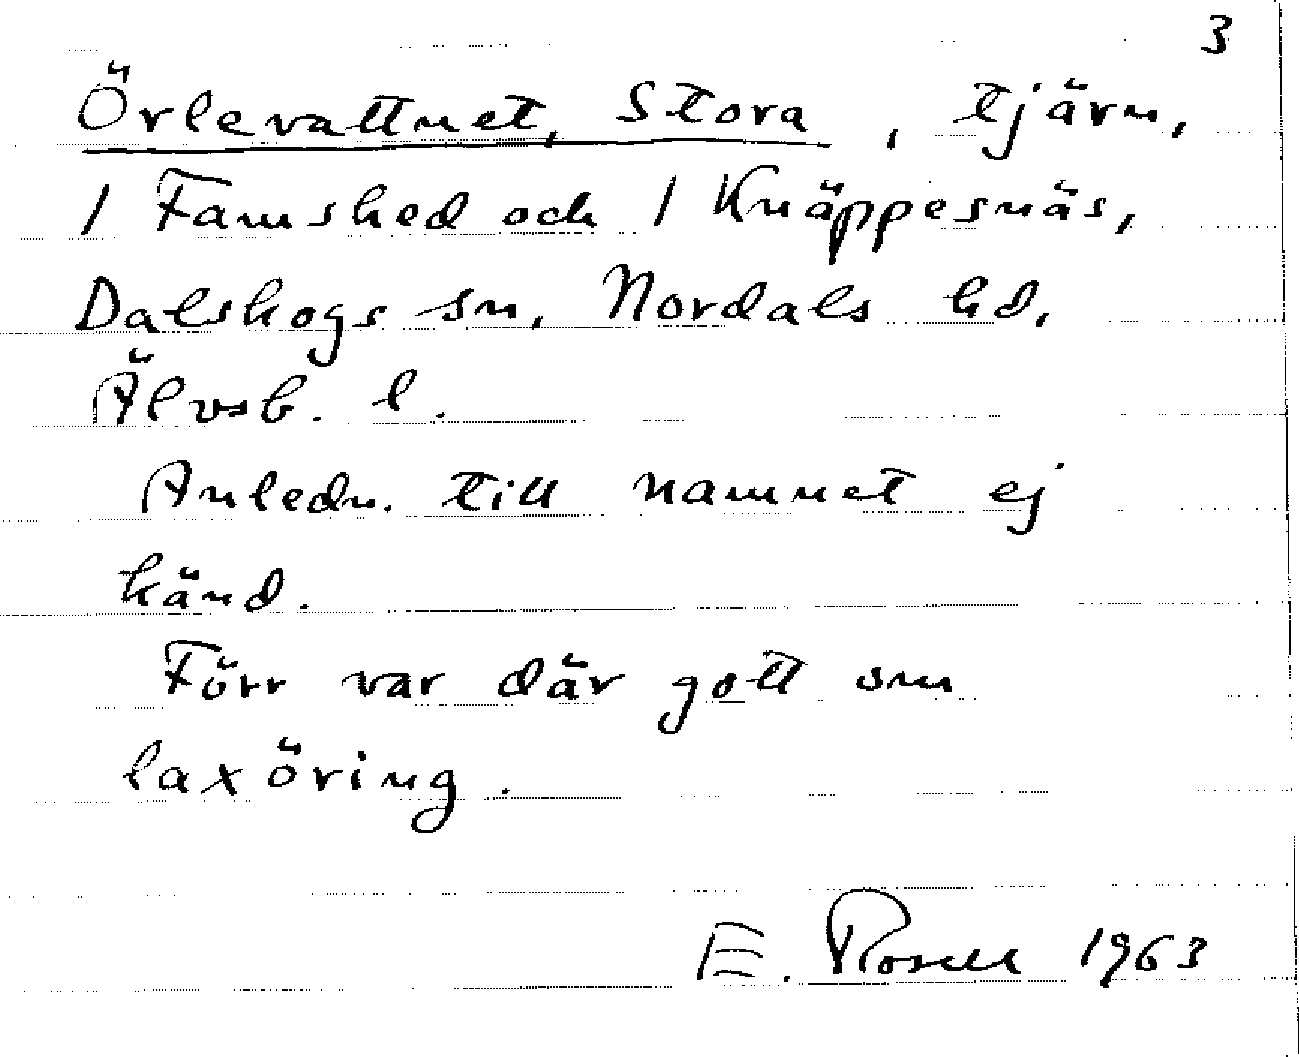 3
Örlevattnet, Stora, tjärn,
1 Famshed och 1 Knäppesnäs,
Dalskogs sn, Nordals hd,
Älvsb. l.
Anledn. till namnet ej
känd.
Förr var där gott om
laxöring.
E. Rosell 1963